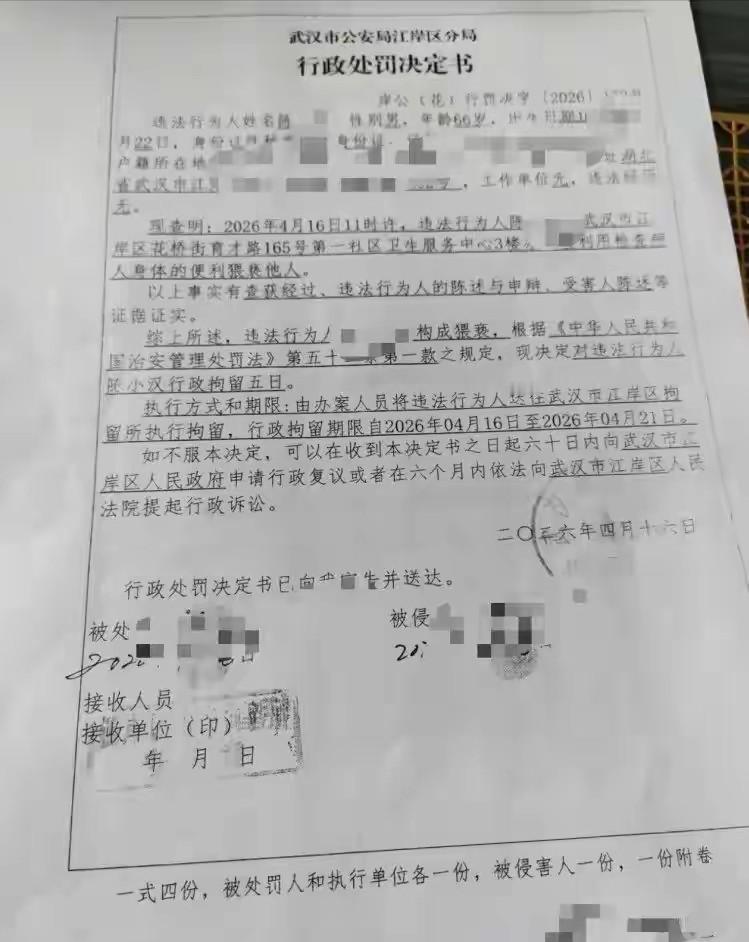 武汉市公安局江岸区分局
行政处罚决定书
岸公（花）行罚决字〔2026〕
违法行为人姓名 性别男，年龄66岁，出生日期
月22日，身份证 身份证
户籍所在地 湖北
省武汉市江 号，工作单位无，违法经历
无。
现查明：2026年4月16日11时许，违法行为人陈 武汉市江
岸区花桥街育才路165号第一社区卫生服务中心3楼 利用检查
人身体的便利猥亵他人。
以上事实有查获经过、违法行为人的陈述与申辩、受害人陈述等
证据证实。
综上所述，违法行为人 构成猥亵，根据《中华人民共和
国治安管理处罚法》第五十 条第一款之规定，现决定对违法行为人
陈小汉行政拘留五日。
执行方式和期限：由办案人员将违法行为人送往武汉市江岸区拘
留所执行拘留，行政拘留期限自2026年04月16日至2026年04月21日。
如不服本决定，可以在收到本决定书之日起六十日内向武汉市江
岸区人民政府申请行政复议或者在六个月内依法向武汉市江岸区人民
法院提起行政诉讼。
二〇二六年四月十六日
行政处罚决定书已向 告并送达。
被处 被侵
202 日 20
接收人员
接收单位（印）
年 月 日
一式四份，被处罚人和执行单位各一份，被侵害人一份，一份附卷